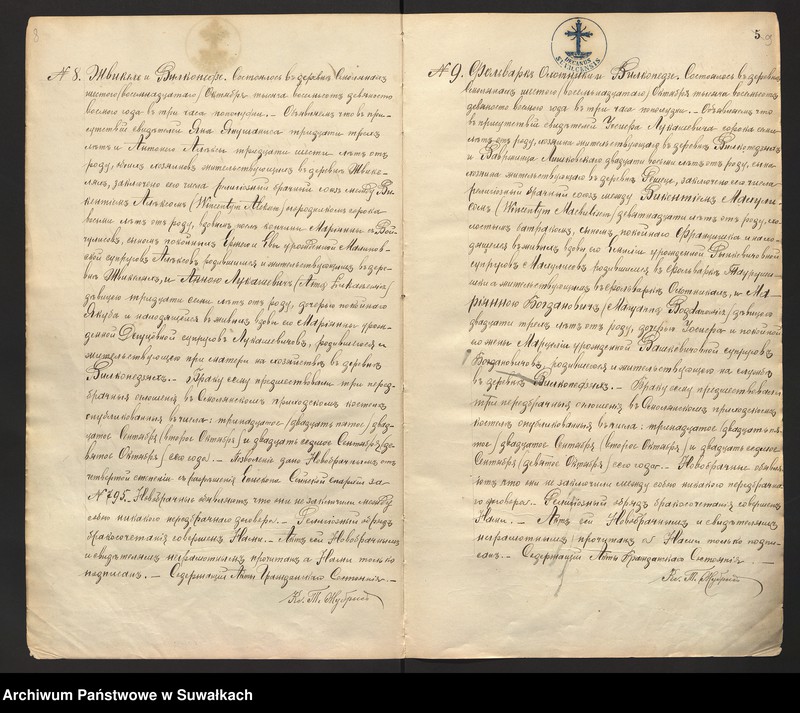 № 8. Жвикеле и Вилкопедзе. Состоялось въ деревнѣ Смолянахъ
шестого /восемнадцатаго/ Октября тысяча восемьсотъ девяносто
восьмого года въ три часа пополудни. – Объявляемъ что въ при-
сутствіи свидѣтелей Яна Янушаниса тридцати трехъ
лѣтъ и Антонія Алексы тридцати шести лѣтъ отъ
роду, обоихъ хозяевъ жительствующихъ въ деревнѣ Жвике-
ляхъ, заключенъ сего числа религіозный брачный союзъ между Ви-
кентіемъ Алексомъ (Wincentym Aleksom) вдовцомъ сорока
восьми лѣтъ отъ роду, вдовцомъ послѣ кончины Маріанны съ Вой-
сыномъ покойныхъ и Евы урожденной Малинов-
ской супруговъ Алексовъ родившимся и жительствующимъ въ дерев-
нѣ Жвикеляхъ, и Анною Лукашевичъ (Anną Łukaszewicz)
дѣвицею тридцати семи лѣтъ отъ роду, дочерью покойнаго
Якуба и находящейся въ живыхъ вдовы его Маріанны урож-
денной супруговъ Лукашевичовъ, родившеюся и
жительствующею при матери на хозяйствѣ въ деревнѣ
Вилкопедзяхъ. – Браку сему предшествовали три пред-
брачныя оглашенія въ Смолянскомъ приходскомъ костелѣ
опубликованныя въ числа: тринадцатое /двадцать пятое/ двад-
цатое Сентября /второе Октября/ и двадцать седьмое Сентября /де-
вятое Октября/ сего года. – Позволеніе дано Новобрачнымъ отъ
четвертой степени съ разрѣшенія Епископа Сейнской епархіи за
№ 795. – Новобрачные объявляютъ что они не заключали между
собою никакого предбрачнаго договора. – Религіозный обрядъ
бракосочетанія совершенъ Нами. – Актъ сей Новобрачнымъ
и свидѣтелямъ неграмотнымъ прочитанъ а Нами только
подписанъ. – Содержащій Акты Гражданскаго Состоянія. –
Кс. Т. Жубржицкій
5
DECANUS SUVALCENSIS
№ 9. Фольваркъ Охотники и Вилкопедзе. Состоялось въ деревнѣ
Смолянахъ шестого /восемнадцатаго/ Октября тысяча восемьсотъ
девяносто восьмого года въ три часа пополудни. – Объявляемъ что
въ присутствіи свидѣтелей Іосифа Лукашевича сорока семи
лѣтъ отъ роду, хозяина жительствующаго въ деревнѣ Вилкопедзяхъ
и Вавринца двадцати восьми лѣтъ отъ роду, сына
хозяина жительствующаго въ деревнѣ заключенъ сего числа
религіозный брачный союзъ между Викентіемъ Мацуле-
сомъ (Wincentym Maculesem) девятнадцати лѣтъ отъ роду, хо-
лостымъ батракомъ, сыномъ покойнаго Францишка и нахо-
дящейся въ живыхъ вдовы его урожденной
супруговъ Мацулесовъ родившимся въ фольваркѣ
и жительствующимъ въ фольваркѣ Охотникахъ, и Ма-
ріанною Богдановичъ (Maryanną Bogdanowicz) дѣвицею
двадцати трехъ лѣтъ отъ роду, дочерью Іосифа и покойной
его жены урожденной супруговъ
Богдановичовъ, родившеюся и жительствующею на службѣ
въ деревнѣ Вилкопедзяхъ. – Браку сему предшествовали
три предбрачныя оглашенія въ Смолянскомъ приходскомъ
костелѣ опубликованныя въ числа: тринадцатое /двадцать пя-
тое/ двадцатое Сентября /второе Октября/ и двадцать седьмое
Сентября /девятое Октября/ сего года. – Новобрачные объяв-
ляютъ что они не заключили между собою никакого предбрачна-
го договора. Религіозный обрядъ бракосочетанія совершенъ
Нами. – Актъ сей Новобрачнымъ и свидѣтелямъ
неграмотнымъ прочитанъ а Нами только подпи-
санъ. – Содержащій Акты Гражданскаго Состоянія. –
Кс. Т. Жубржицкій
Archiwum Państwowe w Suwałkach